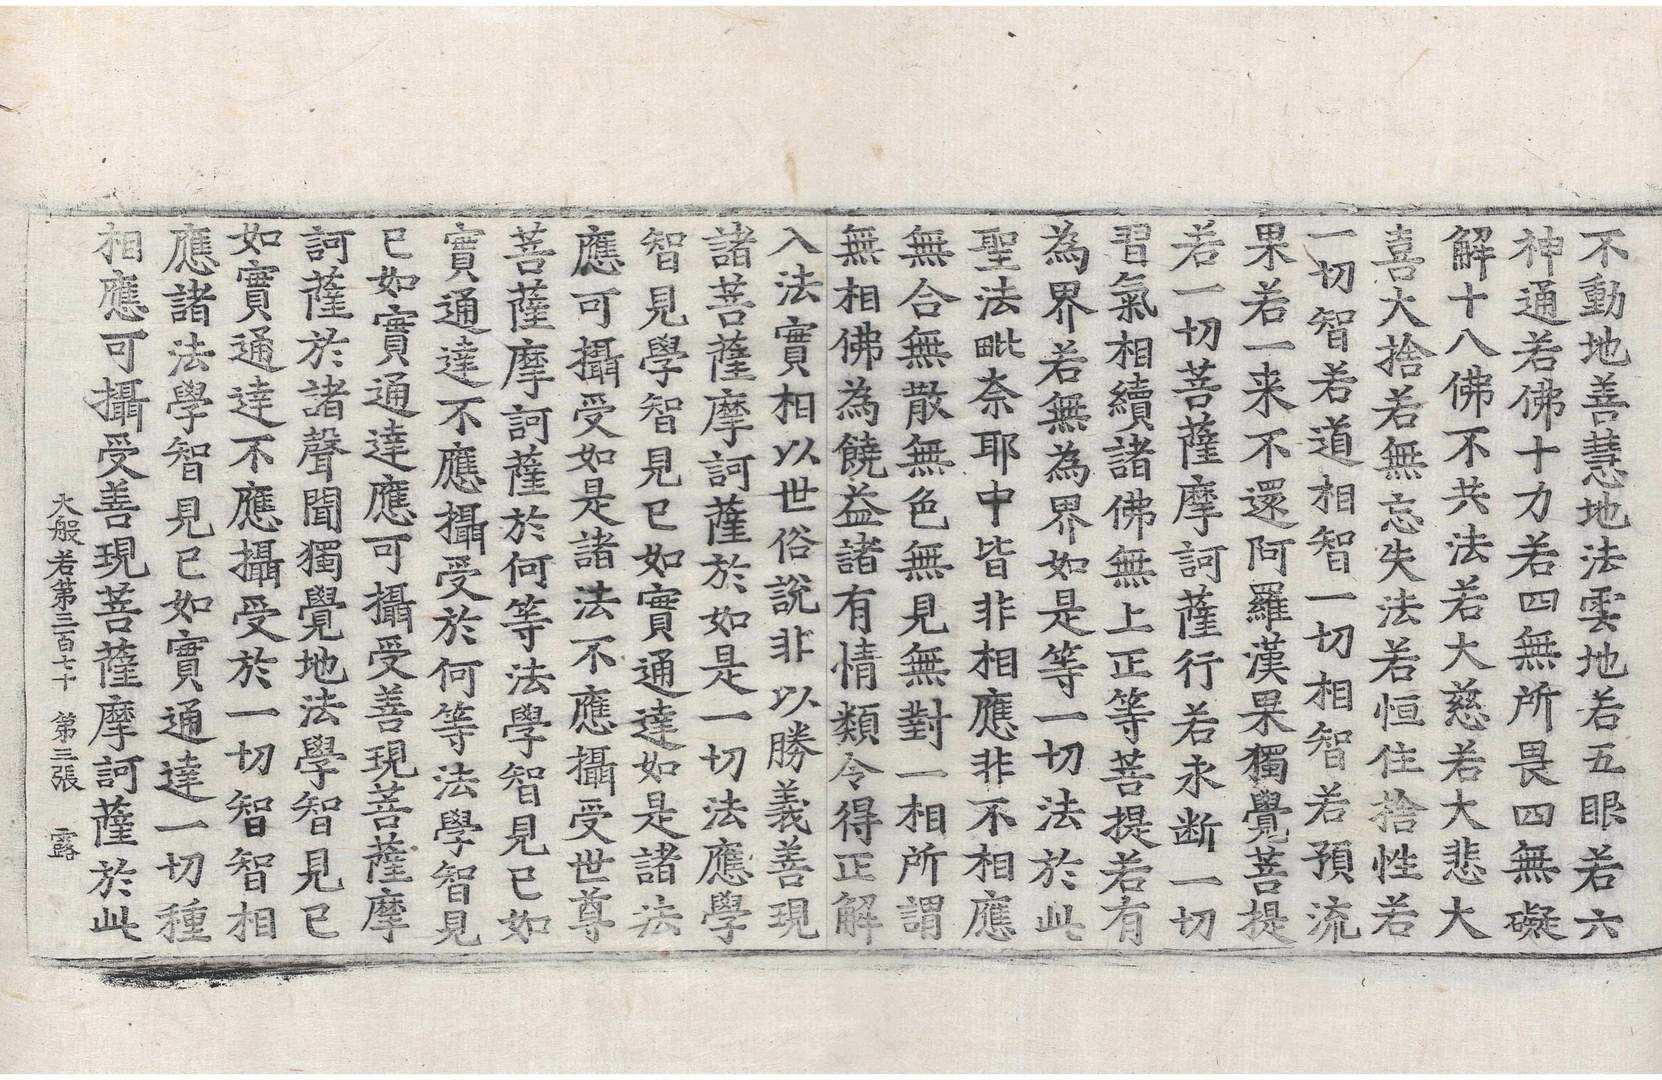 不動地善慧地法雲地若五眼若六
神通若佛十力若四無所畏四無礙
解十八佛不共法若大慈若大悲大
喜大捨若無忘失法若恒住捨性若
一切智若道相智一切相智若預流
果若一来不還阿羅漢果獨覺菩提
若一切菩薩摩訶薩行若永断一切
習氣相續諸佛無上正等菩提若有
為界若無為界如是等一切法於此
聖法毗奈耶中皆非相應非不相應
無合無散無色無見無對一相所謂
無相佛為饒益諸有情類令得正解
入法實相以世俗說非以勝義善現
諸菩薩摩訶薩於如是一切法應學
智見學智見已如實通達如是諸法
應可攝受如是諸法不應攝受世尊
菩薩摩訶薩於何等法學智見已如
實通達不應攝受於何等法學智見
已如實通達應可攝受善現菩薩摩
訶薩於諸聲聞獨覺地法學智見已
如實通達不應攝受於一切智智相
應諸法學智見已如實通達一切種
相應可攝受善現菩薩摩訶薩於此
大般若第三百七十　第三張　露